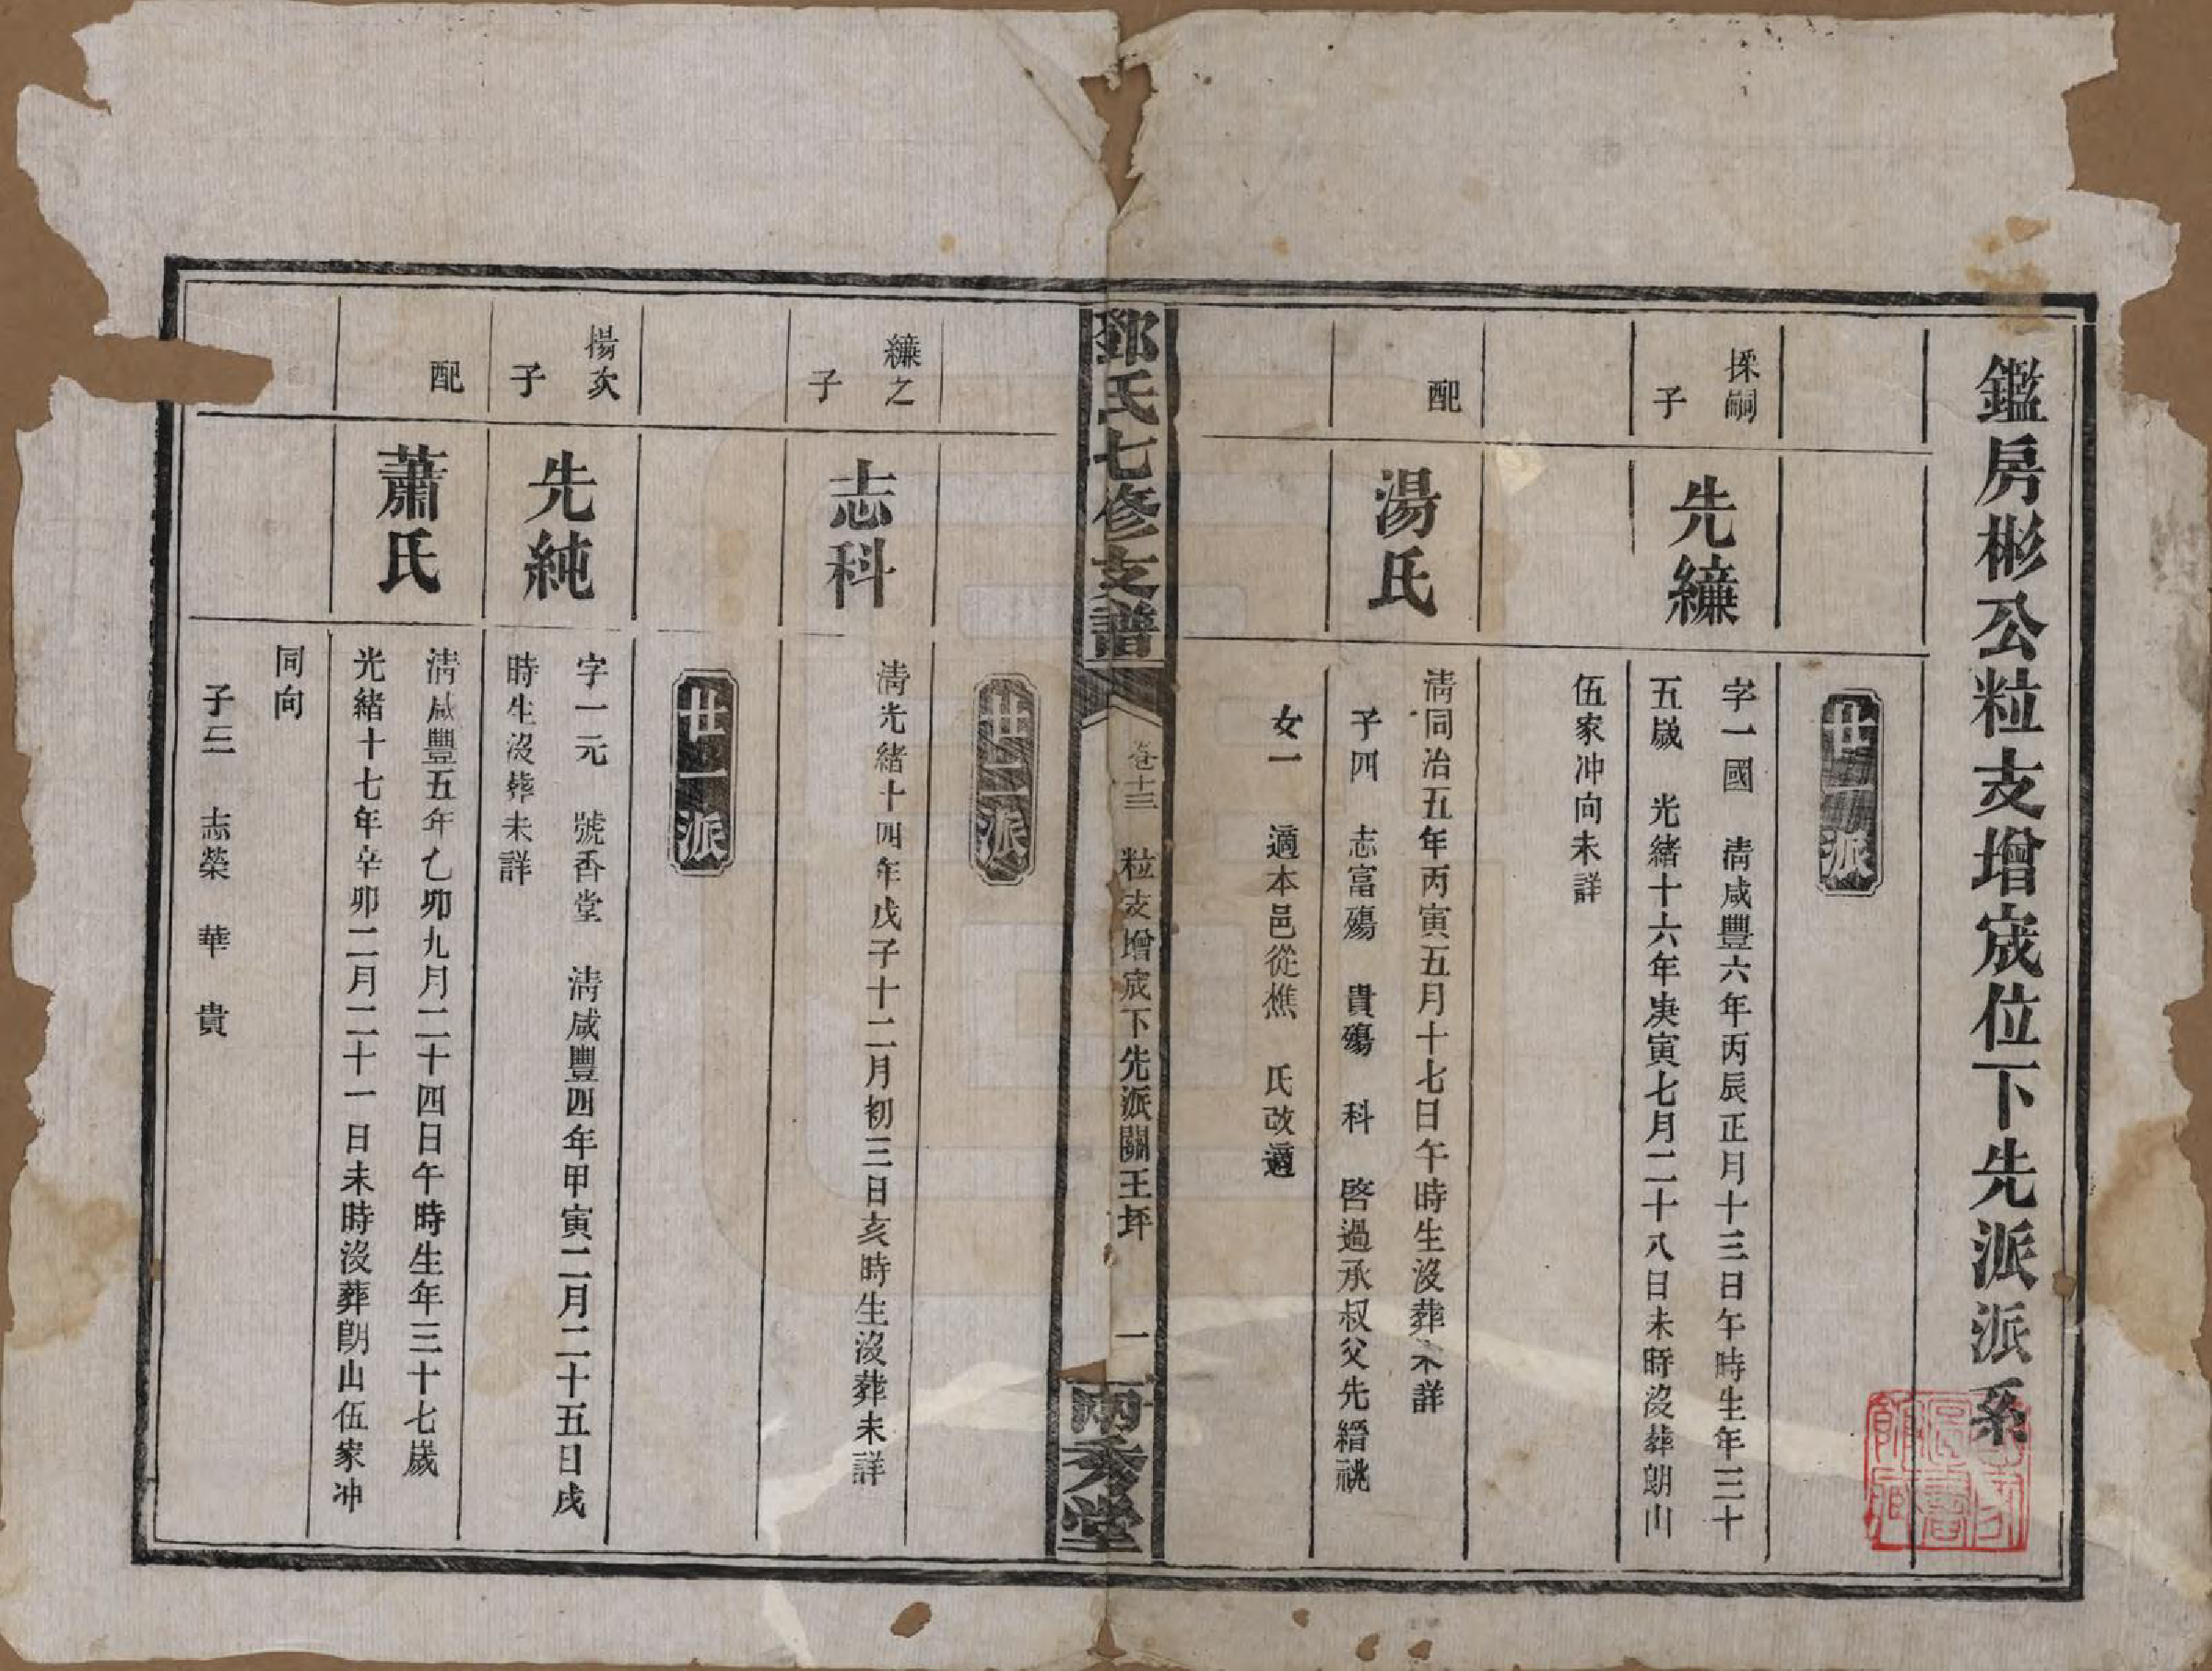 鑑房彬公粒支增宬位下先派派系
廿一派
揉嗣
子
先縑
字一國 清咸豐六年丙辰正月十三日午時生年三十
五歲 光緒十六年庚寅七月二十八日未時沒葬朗山
伍家冲向未詳
配
湯氏
清同治五年丙寅五月十七日午時生沒葬未詳
子四 志富殤 貴殤 科 啓過承叔父先縉祧
女一 適本邑從樵 氏改適
鄧氏七修支譜
卷十三 粒支增宬下先派關王坪 一
兩秀堂
廿二派
縑之
子
志科
清光緒十四年戊子十二月初三日亥時生沒葬未詳
廿一派
楊次
子
先純
字一元 號香堂 清咸豐四年甲寅二月二十五日戌
時生沒葬未詳
配
蕭氏
清咸豐五年乙卯九月二十四日午時生年三十七歲
光緒十七年辛卯二月二十一日未時沒葬朗山伍家冲
同向
子三 志榮 華 貴